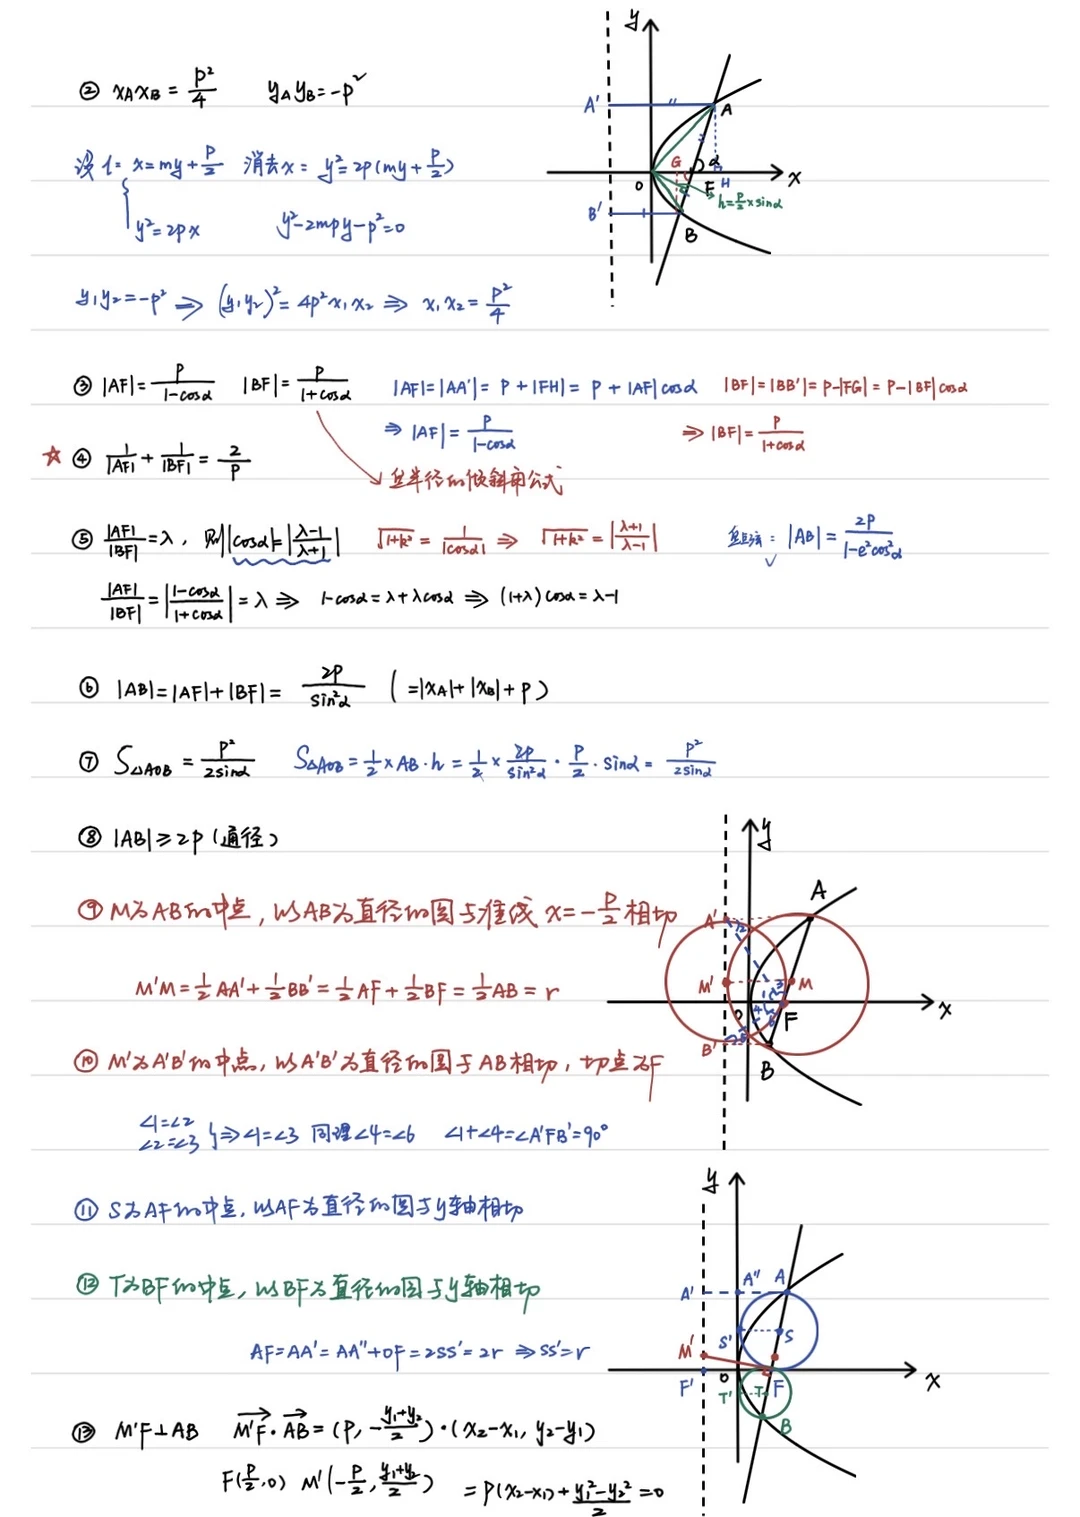 ② xAxB = p²/4    yAyB = -p²
设 l: x = my + p/2    消去x: y² = 2p(my + p/2)
y² = 2px    y² - 2mpy - p² = 0
y₁y₂ = -p² ⇒ (y₁y₂)² = 4p²x₁x₂ ⇒ x₁x₂ = p²/4
y
A'
A
G
α
O
F
H
x
B'
h = p/2 × sinα
B
③ |AF| = p/(1-cosα)    |BF| = p/(1+cosα)    |AF| = |AA'| = p + |FH| = p + |AF|cosα    |BF| = |BB'| = p - |FG| = p - |BF|cosα
⇒ |AF| = p/(1-cosα)    ⇒ |BF| = p/(1+cosα)
☆ ④ 1/|AF| + 1/|BF| = 2/p
焦半径的倾斜角公式
⑤ |AF|/|BF| = λ, 则 |cosα| = |(λ-1)/(λ+1)|    √(1+k²) = 1/|cosα| ⇒ √(1+k²) = |(λ+1)/(λ-1)|    |AB| = 2p/(1-e²cos²α)
|AF|/|BF| = |(1-cosα)/(1+cosα)| = λ ⇒ 1-cosα = λ+λcosα ⇒ (1+λ)cosα = λ-1
⑥ |AB| = |AF| + |BF| = 2p/sin²α    ( = |xA| + |xB| + p )
⑦ S△AOB = p²/2sinα    S△AOB = 1/2 × AB · h = 1/2 × 2p/sin²α · p/2 · sinα = p²/2sinα
⑧ |AB| ≥ 2p (通径)
⑨ M为AB的中点, 以AB为直径的圆与准线 x = -p/2 相切
M'M = 1/2 AA' + 1/2 BB' = 1/2 AF + 1/2 BF = 1/2 AB = r
⑩ M'为A'B'的中点, 以A'B'为直径的圆于AB相切, 切点为F
∠1=∠2
∠2=∠3 } ⇒ ∠1=∠3 同理∠4=∠6    ∠1+∠4=∠A'FB'=90°
y
A
A'
M'
M
O
F
x
B'
B
⑪ S为AF的中点, 以AF为直径的圆于y轴相切
⑫ T为BF的中点, 以BF为直径的圆于y轴相切
AF = AA' = AA'' + OF = 2SS' = 2r ⇒ SS' = r
y
A'
A''
A
S'
S
M'
O
x
F'
T'
T
F
B
⑬ M'F⊥AB    M'F · AB = (p, -(y₁+y₂)/2) · (x₂-x₁, y₂-y₁)
F(p/2, 0)    M'(-p/2, (y₁+y₂)/2)    = p(x₂-x₁) + (y₁²-y₂²)/2 = 0